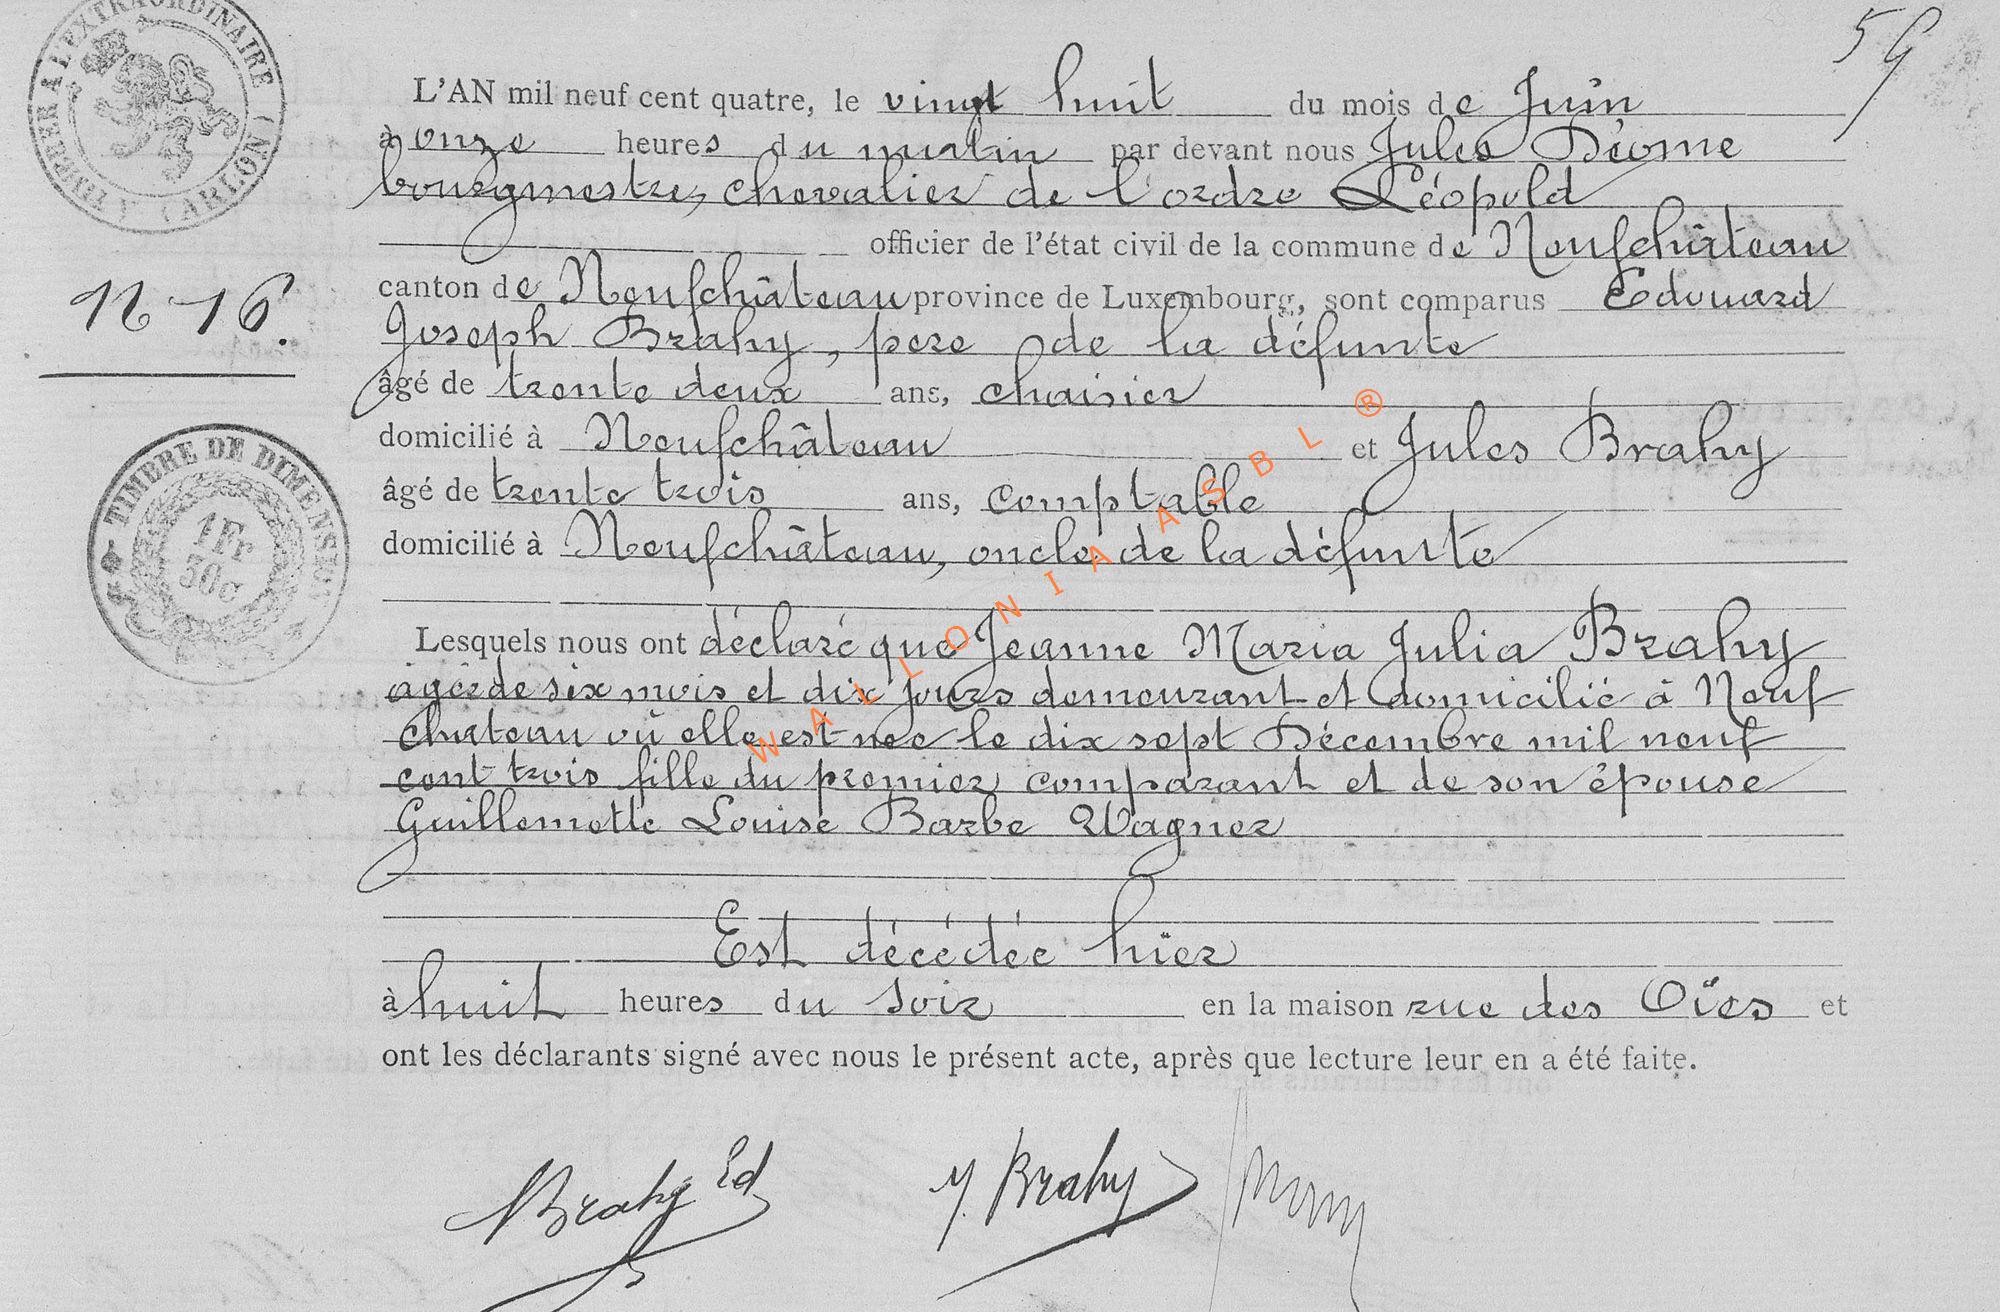 59
TIMBRE A L'EXTRAORDINAIRE (ARLON)
L'AN mil neuf cent quatre, le vingt huit du mois de Juin
à onze heures du matin par devant nous Jules Diome
bourgmestre, chevalier de l'ordre Léopold
officier de l'état civil de la commune de Neufchâteau
canton de Neufchâteau province de Luxembourg, sont comparus Edouard
N 16.
Joseph Brahy, père de la défunte
âgé de trente deux ans, chaisier
domicilié à Neufchâteau et Jules Brahy
âgé de trente trois ans, comptable
TIMBRE DE DIMENSION
1 Fr
30c
domicilié à Neufchâteau, oncle de la défunte
Lesquels nous ont déclaré que Jeanne Maria Julia Brahy
âgée de six mois et dix jours demeurant et domicilié à Neuf
chateau où elle est née le dix sept Décembre mil neuf
cent trois fille du premier comparant et de son épouse
Guillemette Louise Barbe Wagner
Est décédée hier
à huit heures du soir en la maison rue des Oïes et
ont les déclarants signé avec nous le présent acte, après que lecture leur en a été faite.
Brahy Ed
J. Brahy
WALLONIA ASBL ®